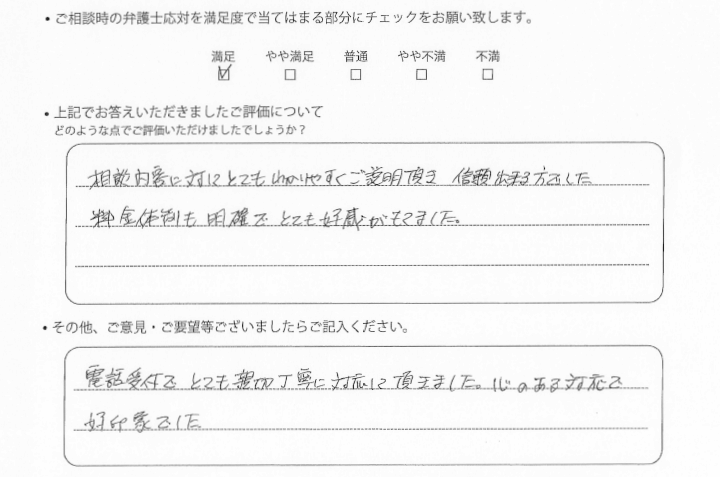 • ご相談時の弁護士応対を満足度で当てはまる部分にチェックをお願い致します。
満足 やや満足 普通 やや不満 不満
☑ □ □ □ □
• 上記でお答えいただきましたご評価について
どのような点でご評価いただけましたでしょうか？
相談内容に対してとてもわかりやすくご説明頂き 信頼出来る方でした
料金体制も明確でとても好感がもてました。
• その他、ご意見・ご要望等ございましたらご記入ください。
電話受付でとても親切丁寧に対応して頂きました。心のある対応で
好印象でした